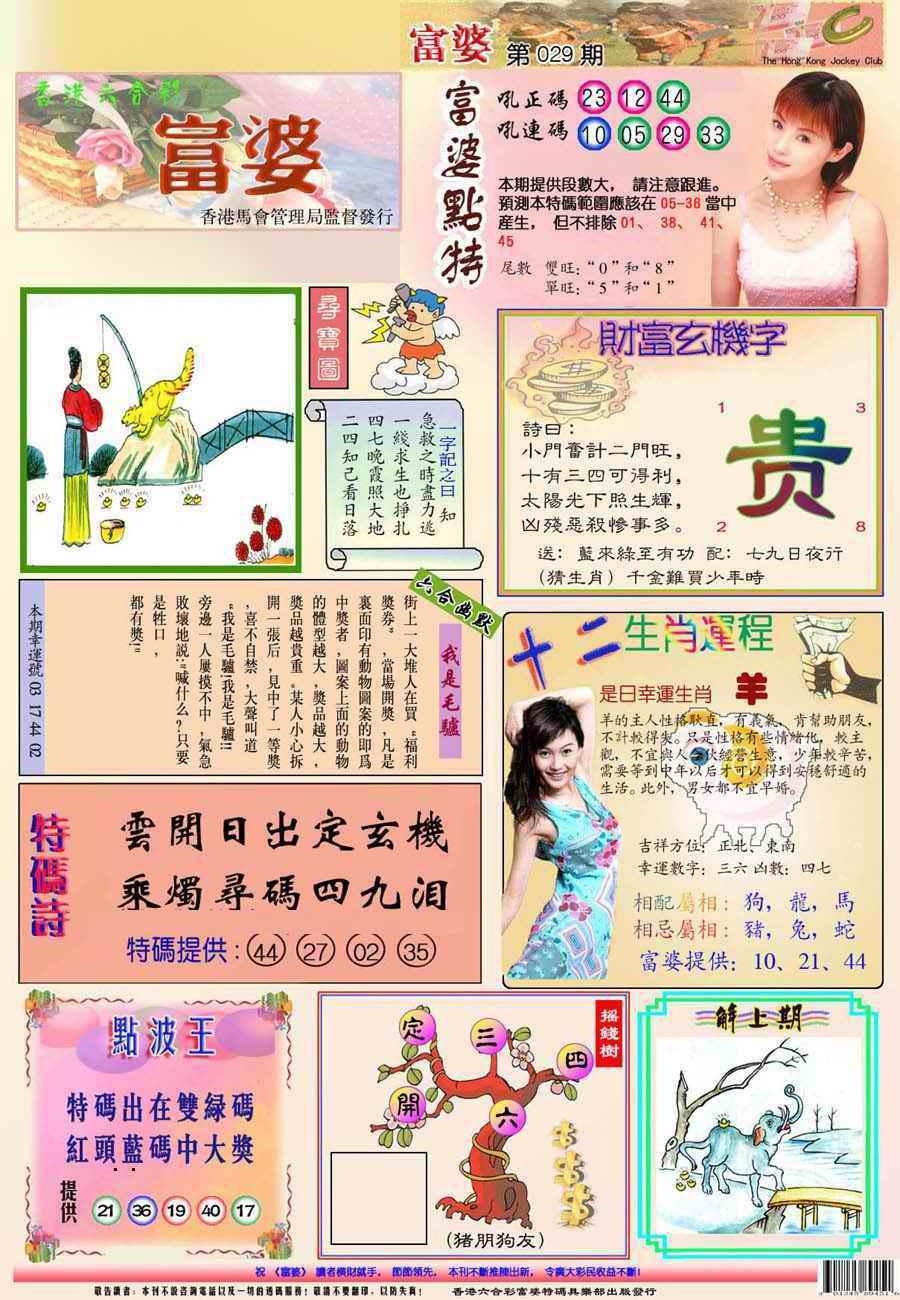 富婆 第 029 期
The Hong Kong Jockey Club
香港六合彩
富婆
香港馬會管理局監督發行
富婆點特
吼正碼 23 12 44
吼連碼 10 05 29 33
本期提供段數大， 請注意跟進。
預測本特碼範圍應該在 05-36 當中
産生， 但不排除 01、 38、 41、
45
尾數 雙旺:“0”和“8”
單旺:“5”和“1”
尋寶圖
一字記之曰 知
急救之時盡力逃
一綫求生也掙扎
四七晚霞照大地
二四知己看日落
財富玄機字
1 3
贵
2 8
詩曰:
小門奮計二門旺，
十有三四可得利，
太陽光下照生輝，
凶殘惡殺慘事多。
送: 藍來綠至有功 配: 七九日夜行
(猜生肖) 千金難買少年時
六合幽默
我是毛驢
街上一大堆人在買“福利
獎券”，當場開獎，凡是
裏面印有動物圖案的即爲
中獎者，圖案上面的動物
的體型越大，獎品越大，
獎品越貴重。某人小心拆
開一張后，見中了一等獎
，喜不自禁，大聲叫道
“我是毛驢!我是毛驢!!!
旁邊一人屢摸不中，氣急
敗壞地説:“喊什么?只要
是牲口，
都有獎!”
本期幸運號 03 17 44 02
十二生肖運程
是日幸運生肖 羊
羊的主人性格耿直，有義氣、肯幫助朋友，
不計較得失。只是性格有些情緒化，較主
觀，不宜與人合伙經營生意，少年較辛苦，
需要等到中年以后才可以得到安穩舒適的
生活。此外，男女都不宜早婚。
吉祥方位: 正北、東南
幸運數字: 三六 凶數: 四七
相配屬相: 狗，龍，馬
相忌屬相: 豬，兔，蛇
富婆提供: 10、21、44
特碼詩
雲開日出定玄機
乘燭尋碼四九泪
特碼提供: 44 27 02 35
點波王
特碼出在雙緑碼
紅頭藍碼中大獎
提供 21 36 19 40 17
搖錢樹
定 三 四
開 六
(猪朋狗友)
解上期
祝 《富婆》 讀者横財就手， 節節領先， 本刊不斷推陳出新， 令廣大彩民收益不斷!
敬告讀者: 本刊不設咨詢電話以及一切的透碼服務! 敬請不要翻印，以防失真! 香港六合彩富婆特碼具樂部出版發行